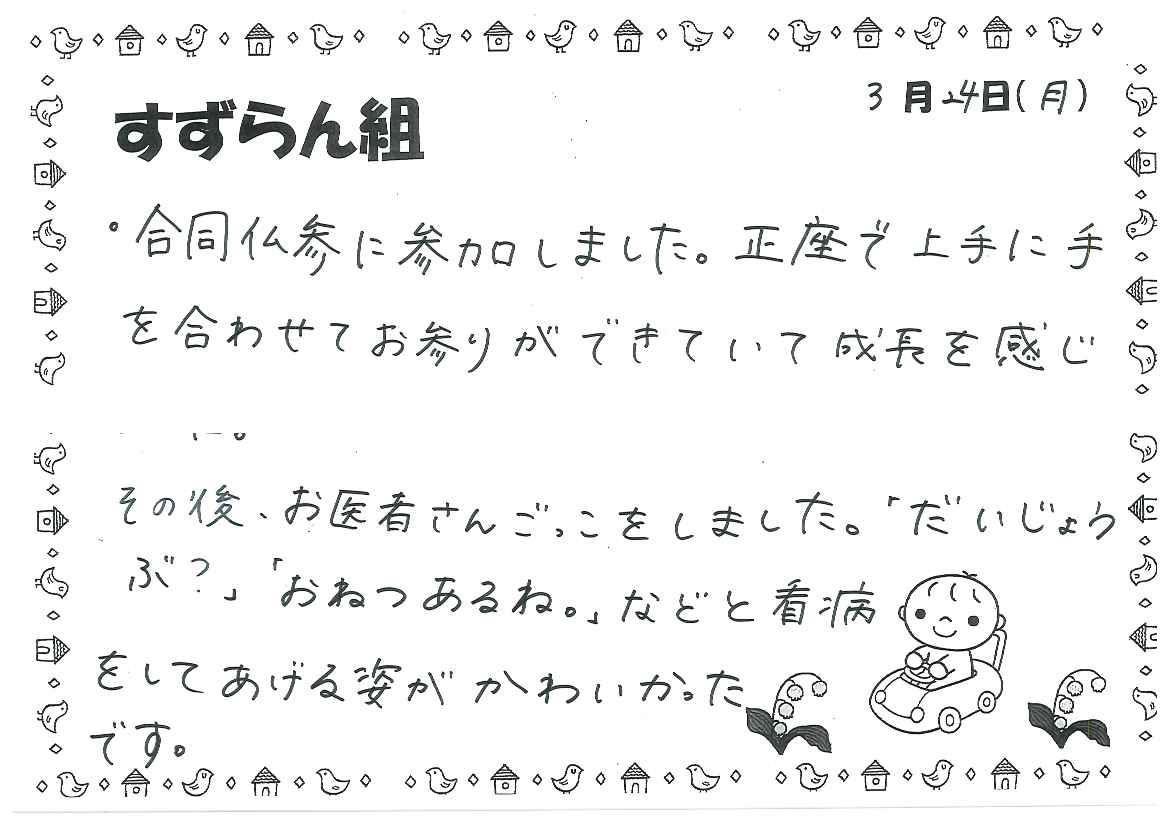 すずらん組
3月24日(月)
。合同仏参に参加しました。正座で上手に手
を合わせてお参りができていて成長を感じ
た。
その後、お医者さんごっこをしました。「だいじょう
ぶ?」「おねつあるね。」などと看病
をしてあげる姿がかわいかった
です。